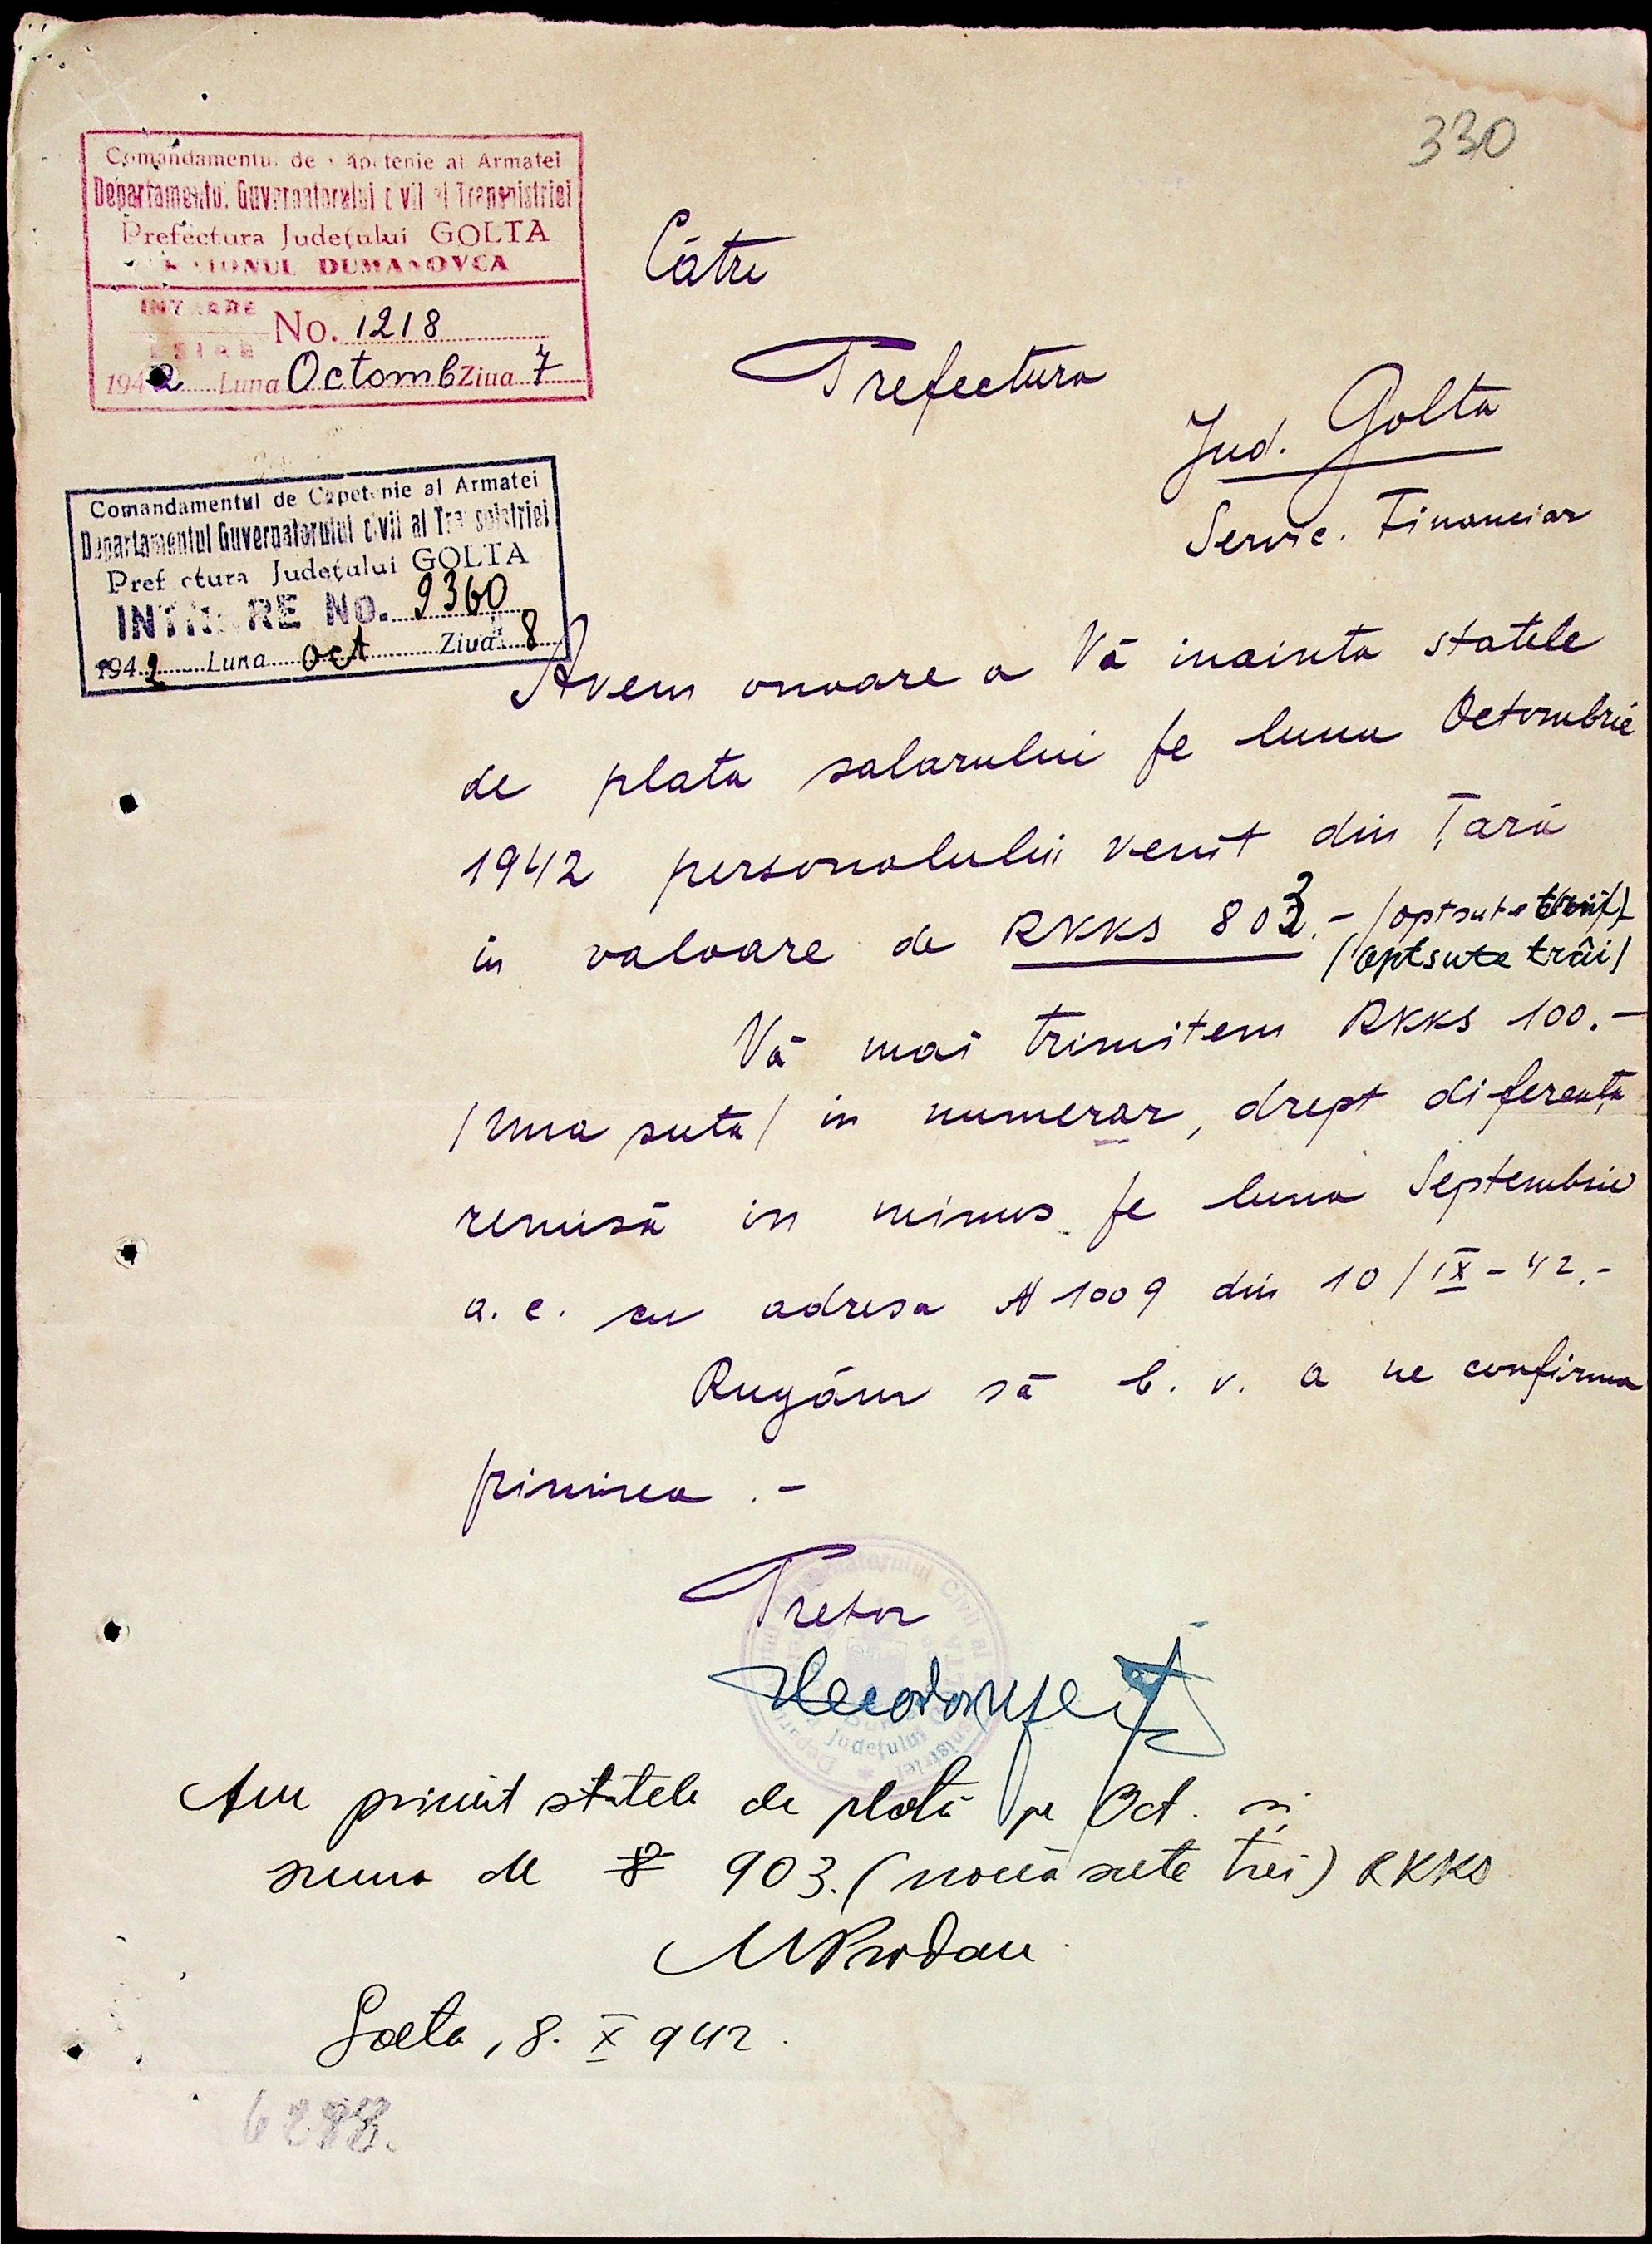 330
Comandamentul de Căpetenie al Armatei
Departamentul Guvernatorului civil al Transnistriei
Prefectura Județului GOLTA
RAIONUL DUMANOVCA
INTRARE
ESIRE
No. 1218
1942 Luna Octomb Ziua 7
Comandamentul de Căpetenie al Armatei
Departamentul Guvernatorului civil al Transnistriei
Prefectura Județului GOLTA
INTRARE No. 9360
1942 Luna oct Ziua 8
Cătru
Prefectura
Jud. Golta
Servic. Financiar
Avem onoare a Vă inainta statele
de plata salarului pe luna Octombrie
1942 personalului venit din Țară
in valoare de RKKS 803.- /optsute trei/
/optsute trâi/
Vă mai trimitem RKKS 100.-
/Una suta/ in numerar, drept diferența
remisă in minus pe luna Septembrie
a. c. cu adresa № 1009 din 10/IX-42.-
Rugăm să b. v. a ne confirma
primirea.-
Pretor
Am primit statele de plată pe Oct. și
suma de 8 903. (nouă sute trei) RKKS
MProdan
Golta, 8. X 942.